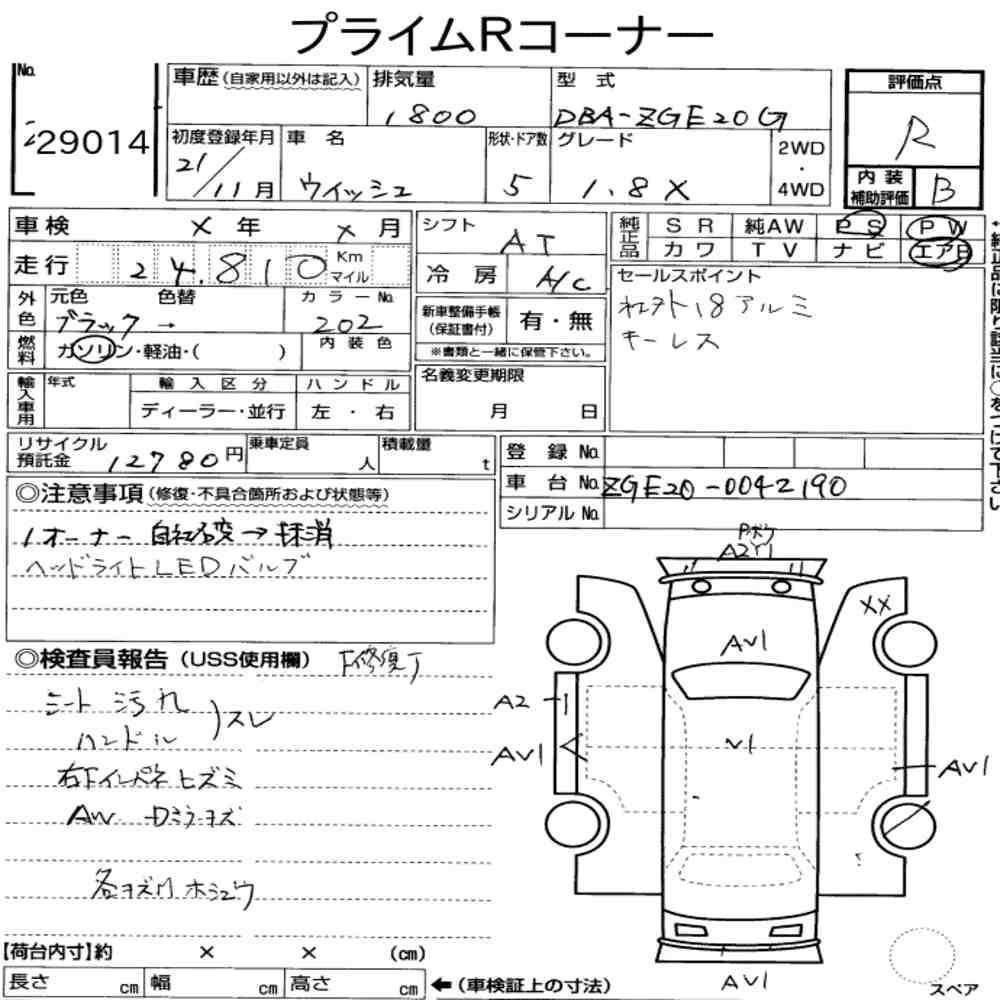 プライムRコーナー
No.
29014
車歴 (自家用以外は記入)
排気量
1800
型式
DBA-ZGE20G
初度登録年月
21/11月
車名
ウイッシュ
形状・ドア数
5
グレード
1.8X
2WD
・
4WD
評価点
R
内装
補助評価
B
車検 × 年 × 月
走行 24,810 Km
マイル
外色
元色 色替 カラーNo.
ブラック → 202
燃料
ガソリン・軽油・( )
内装色
輸入車用
年式
輸入区分
ディーラー・並行
ハンドル
左・右
シフト
AT
冷房 A/C
新車整備手帳
(保証書付)
有・無
※書類と一緒に保管下さい。
名義変更期限
月 日
純正品
SR 純AW PS PW
カワ TV ナビ エアB
セールスポイント
18アルミ
キーレス
←純正品に限り該当に○をつけて下さい
リサイクル
預託金 12780円
乗車定員
人
積載量
t
登録No.
車台No. ZGE20-0042190
シリアルNo.
◎注意事項 (修復・不具合箇所および状態等)
1オーナー 自社名変→抹消
ヘッドライトLEDバルブ
◎検査員報告 (USS使用欄) F修復丁
シート 汚れ
ハンドル
スレ
右下インパネヒズミ
AW Dミラーキズ
各キズ凹ホシュウ
A2Y1
XX
AV1
A2
AV1
V1
AV1
AV1
スペア
【荷台内寸】約 × × (cm)
長さ cm 幅 cm 高さ cm ←(車検証上の寸法)